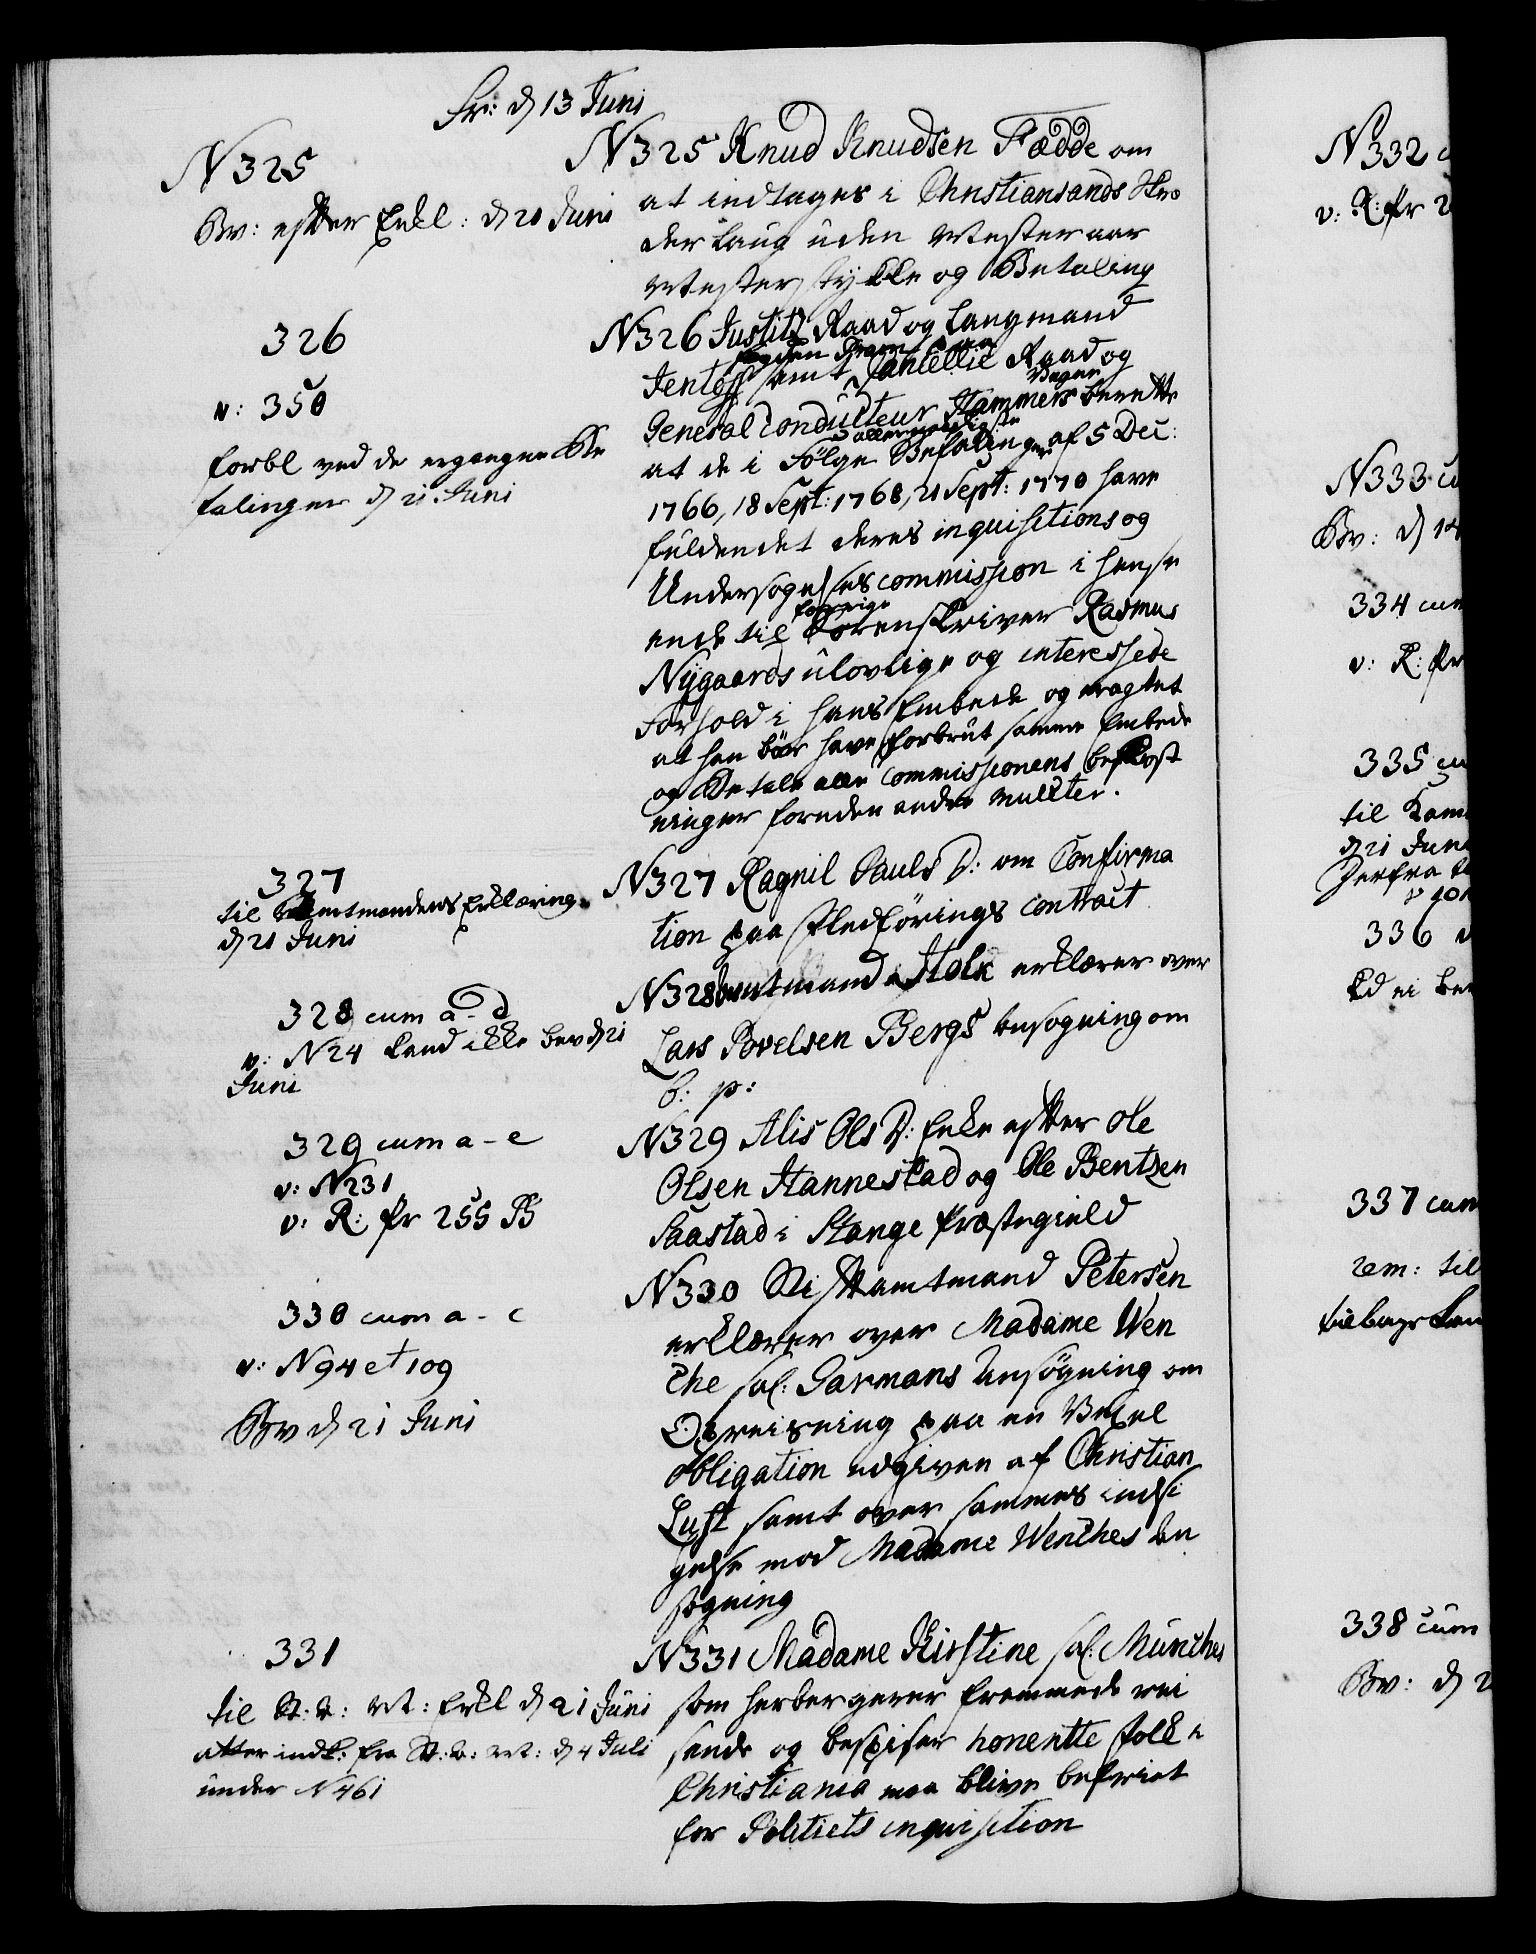 Fr: d 13 Juni
N325
Bv: efter Erkl: d 21 Juni
N325 Knud Knudsen Fædde om
at indtages i Christiansands Skræ
der laug uden Mesteraar
Mesterstykke og Betaling
326
v: 350
forbl ved de ergangne Be
falinger d 21 Juni
N326 Justitz Raad og Laugmand
Jentoft samt Cancellie Raad og
General Conducteur Hammers berette
at de i Følge allernaadigste Befalinger af 5 Dec:
1766, 18 Sept: 1768, 21 Sept: 1770 have
fuldendet deres inquisitions og
Undersøgelses commission i hense
ende til forrige Sorenskriver Rasmus
Nygaards ulovlige og interessede
Forhold i hans Embede og eragtet
at han bør have forbrut samme Embede
og Betale alle Commissionens bekost
ninger foruden andre Mulcter.
327
til Amtmandens Erklæring
d 21 Juni
N327 Ragnil Pauls D: om Confirma
tion paa Fledførings contract
328 cum a - d
v: N24 kand ikke bev d 21
Juni
N328 Amtmand Holk erklærer over
Lars Povelsen Bergs Ansøgning om
b: p:
329 cum a - e
v: N231
v: R: fr 255 B
N329 Alis Ols D: Enke efter Ole
Olsen Hannestad og Ole Bentzen
Saastad i Stange Præstegield
330 cum a - c
v: N94 et 109
Bv d 21 Juni
N330 Stiftamtmand Petersen
erklærer over Madame Wen
che sal: Garmans Ansøgning om
Opreisning paa en Vexel
Obligation udgiven af Christian
Lust samt over sammes indsi
gelse mod Madame Wenches An
søgning
331
til St: v: Mt: Erkl d 21 Juni
atter indk: fra St: v: Mt: d 4 Juli
under N461
N331 Madame Kirstine sal: Münches
som herbergerer fremmede rei
sende og bespiser honentte folk i
Christiania maa blive befriet
for Politiets inquisition
N332
v: R: fr
N333
Bv: d
334 cum
v: R: fr
335
til
d 21 Juni
336
337 cum
rem: til
338 cum
Bv: d